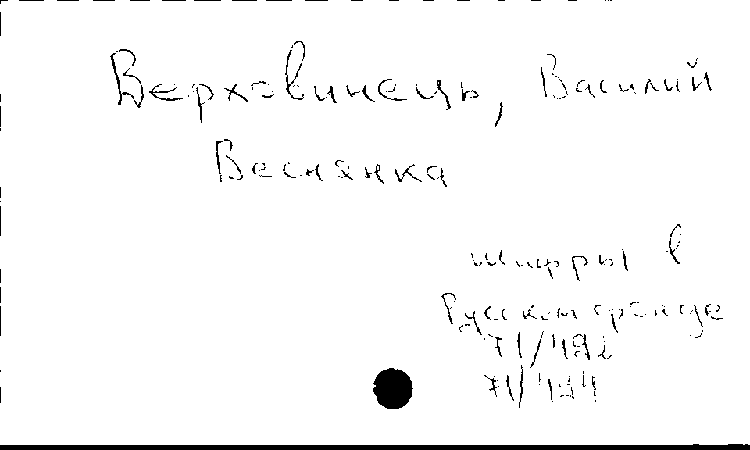 Верховинець, Василий
Веснянка
шифры в
Русском фонде
71/492
71/494